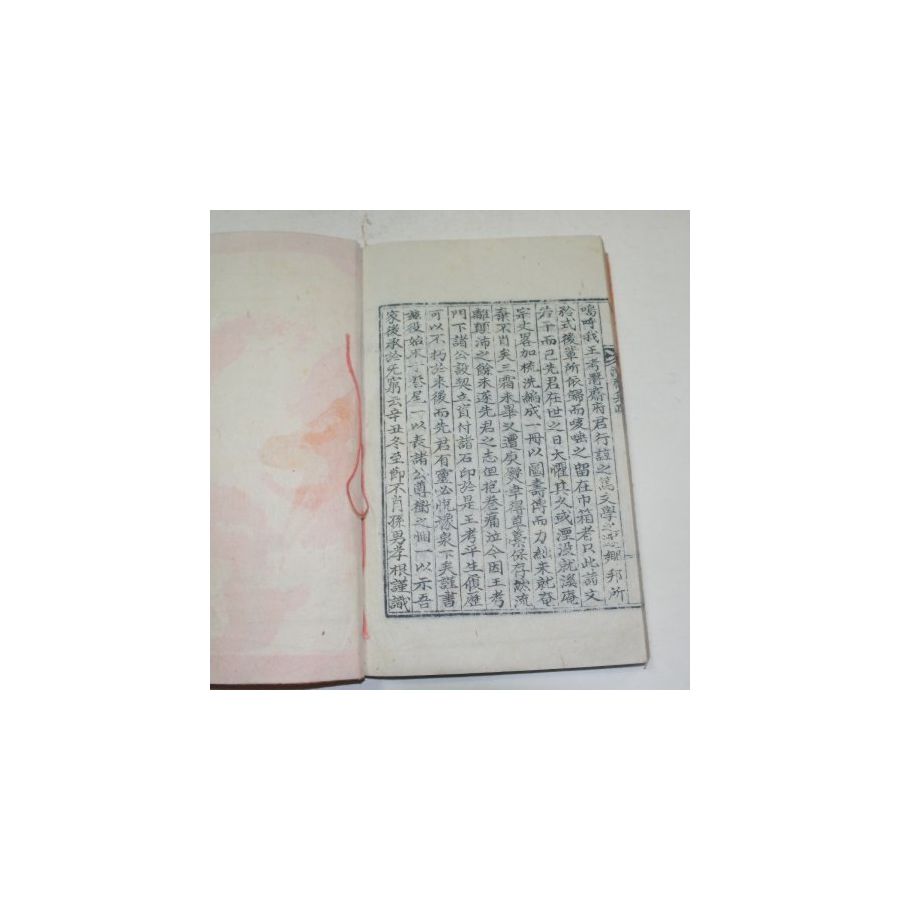 嗚呼我王考潛齋府君行誼之篤文學之鄉邦所
矜式後輩所依歸而咳唾之留在巾箱者只此詩文
若干而已先君在世之日大懼其久或湮沒就澹庵
宰丈畧加梳洗編成一冊以圖壽傳而力紃未就奄
棄不肖矣三霜未畢又遭庚變幸得草藁保存然流
離顛沛之餘未遂先君之志但抱卷痛泣今因王考
門下諸公設契立資付諸石印於是王考平生履歷
可以不朽於來後而先君有靈必悅豫泉下矣謹書
玆役始末于卷尾一以表諸公尊衛之悃一以示吾
家後承於無窮云辛丑冬至節不肖孫男孝根謹識